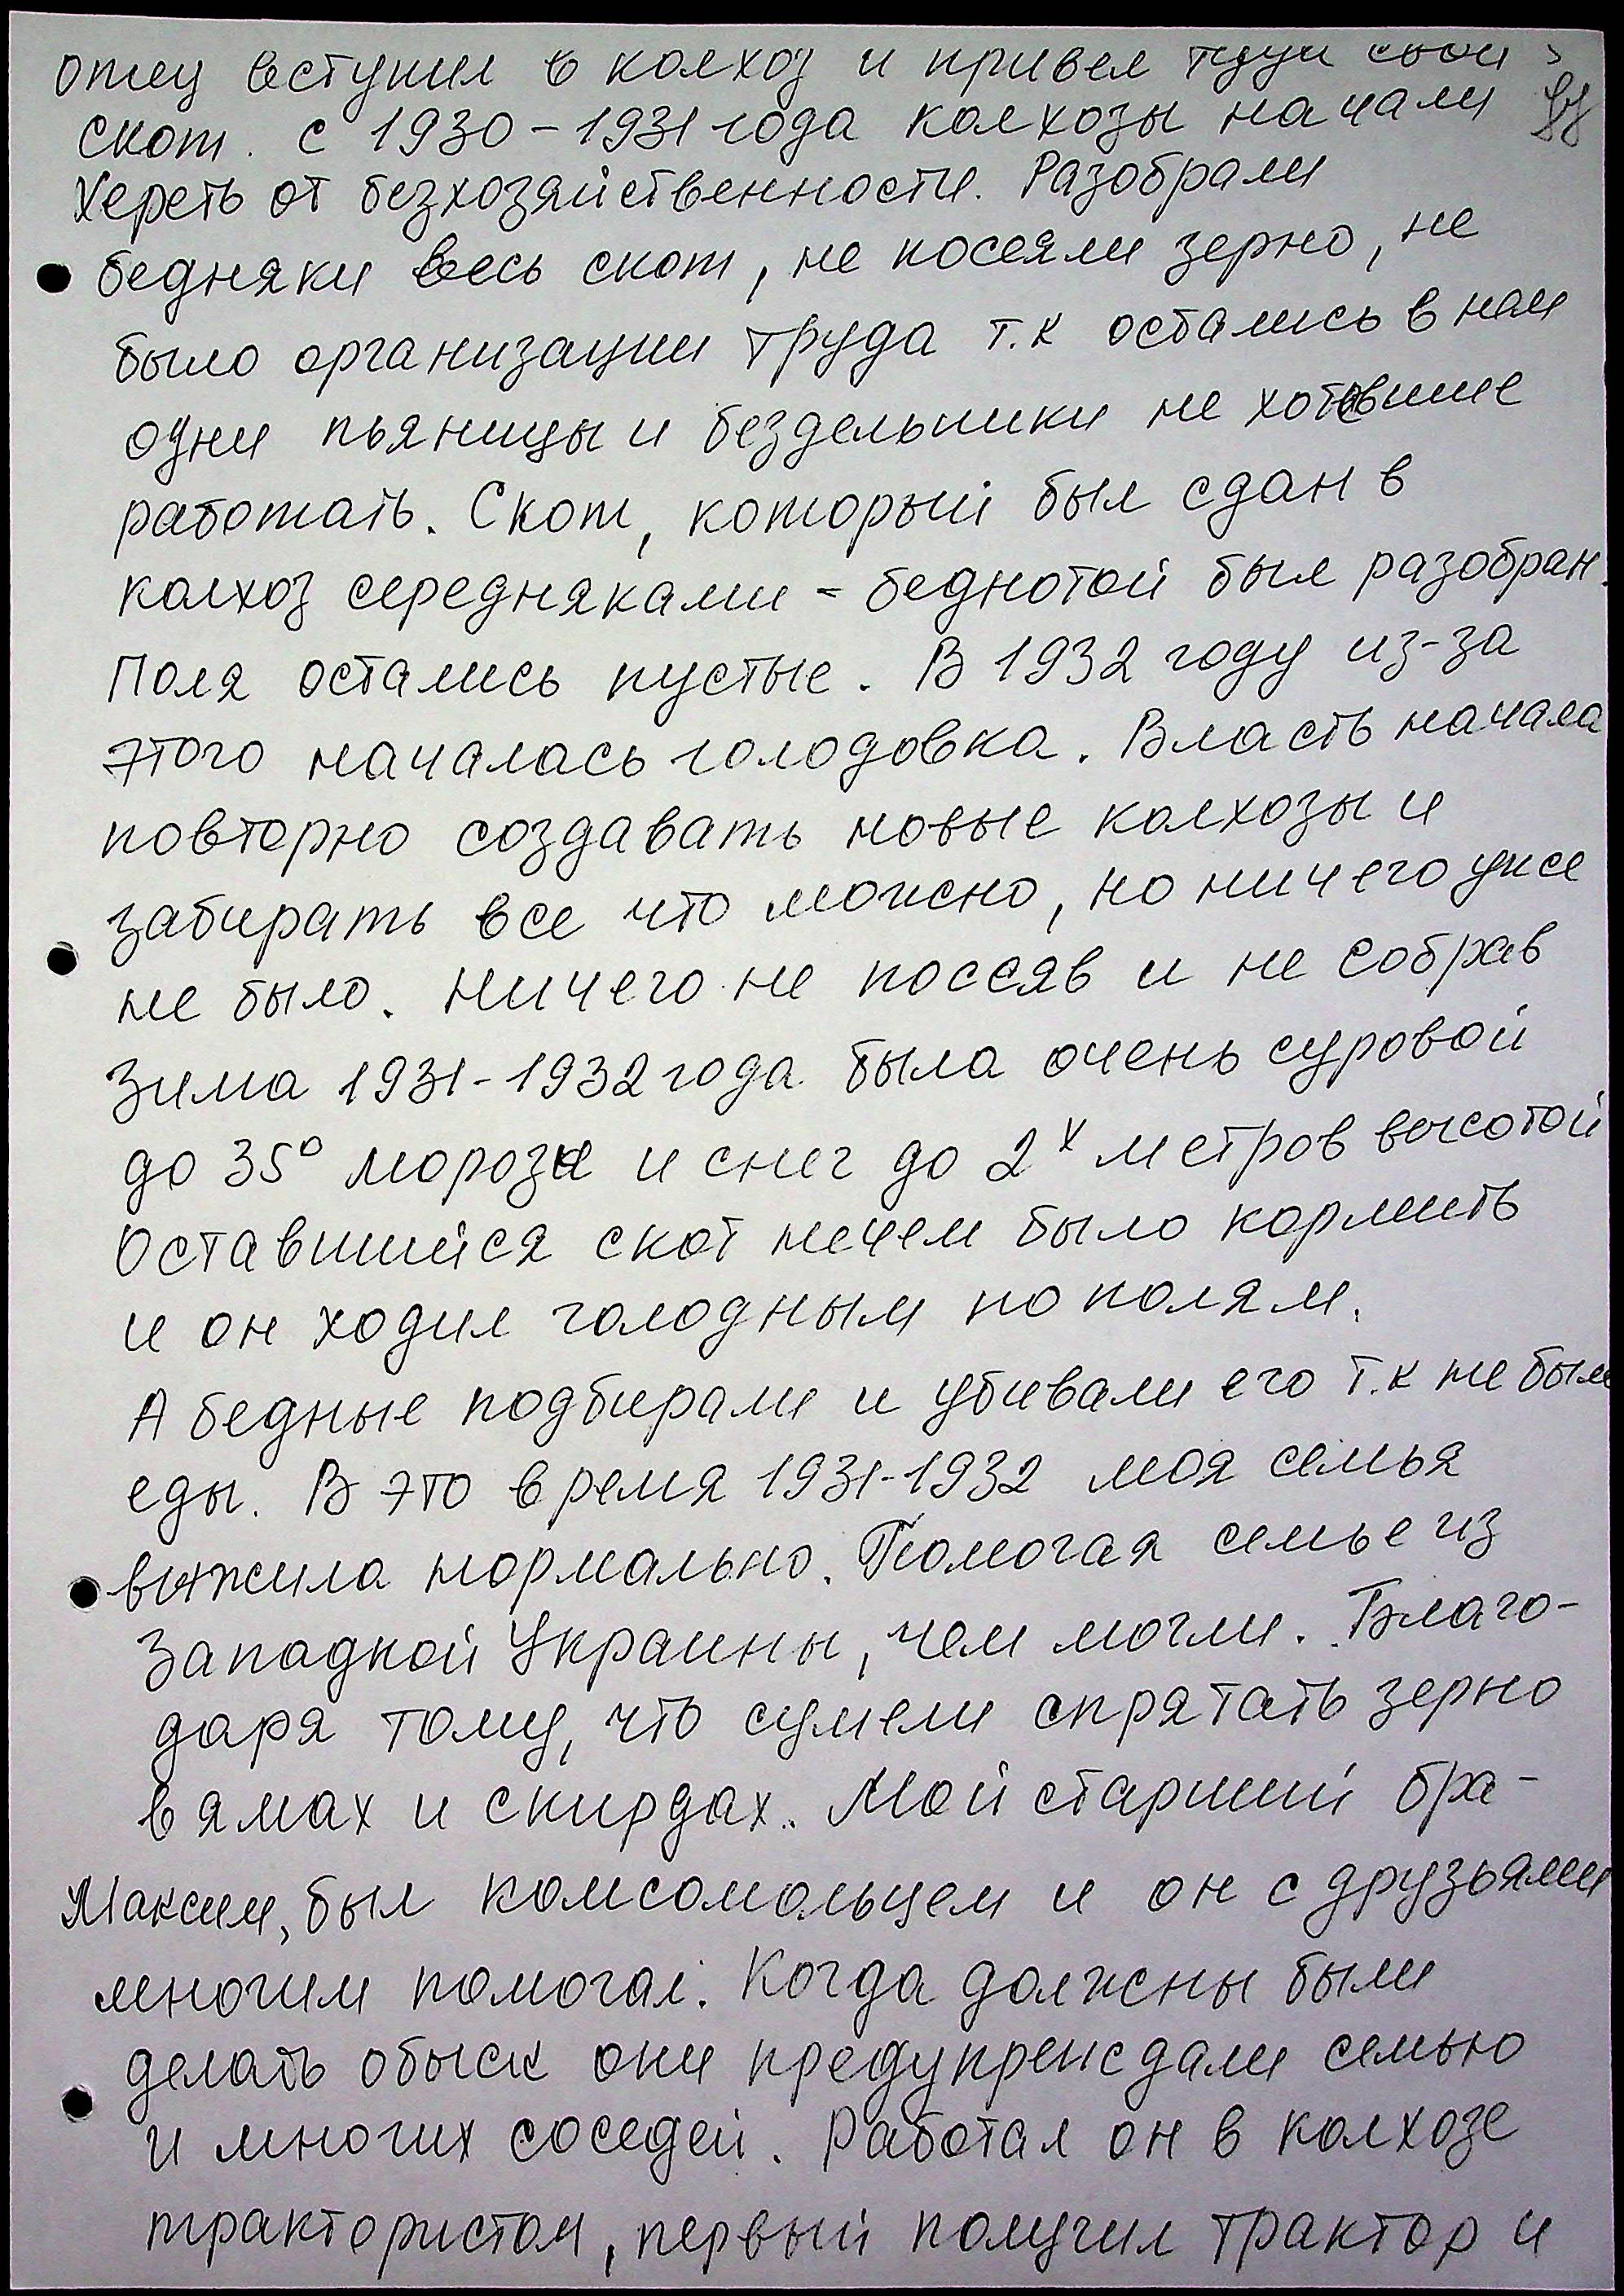 отец вступил в колхоз и привел туда свой
скот. С 1930-1931 года колхозы начали
хереть от безхозяйственности. Разобрали
бедняки весь скот, не посеяли зерно, не
было организации труда т.к остались в нем
одни пьяницы и бездельники не хотевшие
работать. Скот, который был сдан в
колхоз середняками - беднотой был разобран.
Поля остались пустые. В 1932 году из-за
этого началась голодовка. Власть начала
повторно создавать новые колхозы и
забирать все что можно, но ничего уже
не было. Ничего не посеяв и не собрав
Зима 1931-1932 года была очень суровой
до 35° мороза и снег до 2х метров высотой
Оставшийся скот нечем было кормить
и он ходил голодным по полям.
А бедные подбирали и убивали его т.к не было
еды. В это время 1931-1932 моя семья
выжила нормально. Помогая семье из
Западной Украины, чем могли. Благо-
даря тому, что сумели спрятать зерно
в ямах и скирдах. Мой старший бра-
Максим, был комсомольцем и он с друзьями
многим помогал. Когда должны были
делать обыск они предупреждали семью
и многих соседей. Работал он в колхозе
трактористом, первый получил трактор и